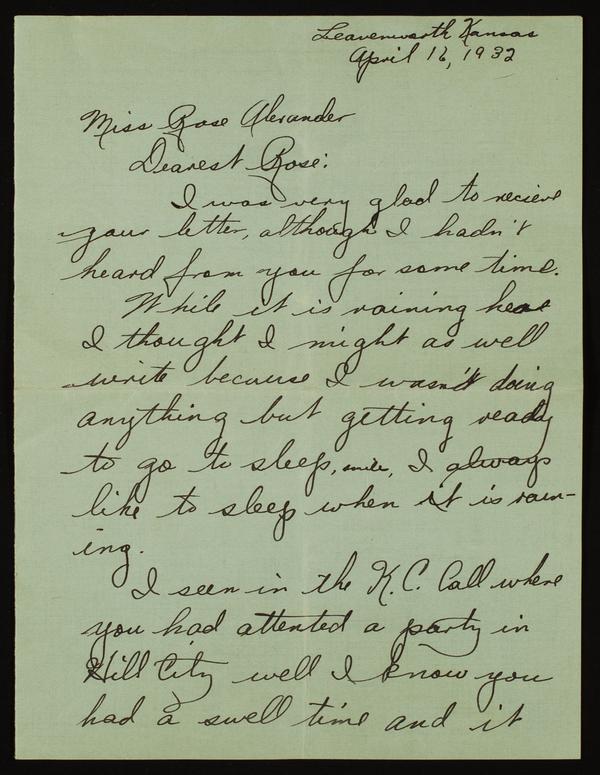 Leavenworth Kansas
April 16, 1932
Miss Rose Alexander
Dearest Rose:
I was very glad to recieve
your letter, although I hadn't
heard from you for some time.
While it is raining hear
I thought I might as well
write because I wasn't doing
anything but getting ready
to go to sleep, smile, I always
like to sleep when it is rain-
ing.
I seen in the K.C. Call where
you had attented a party in
Hill City well I know you
had a swell time and it